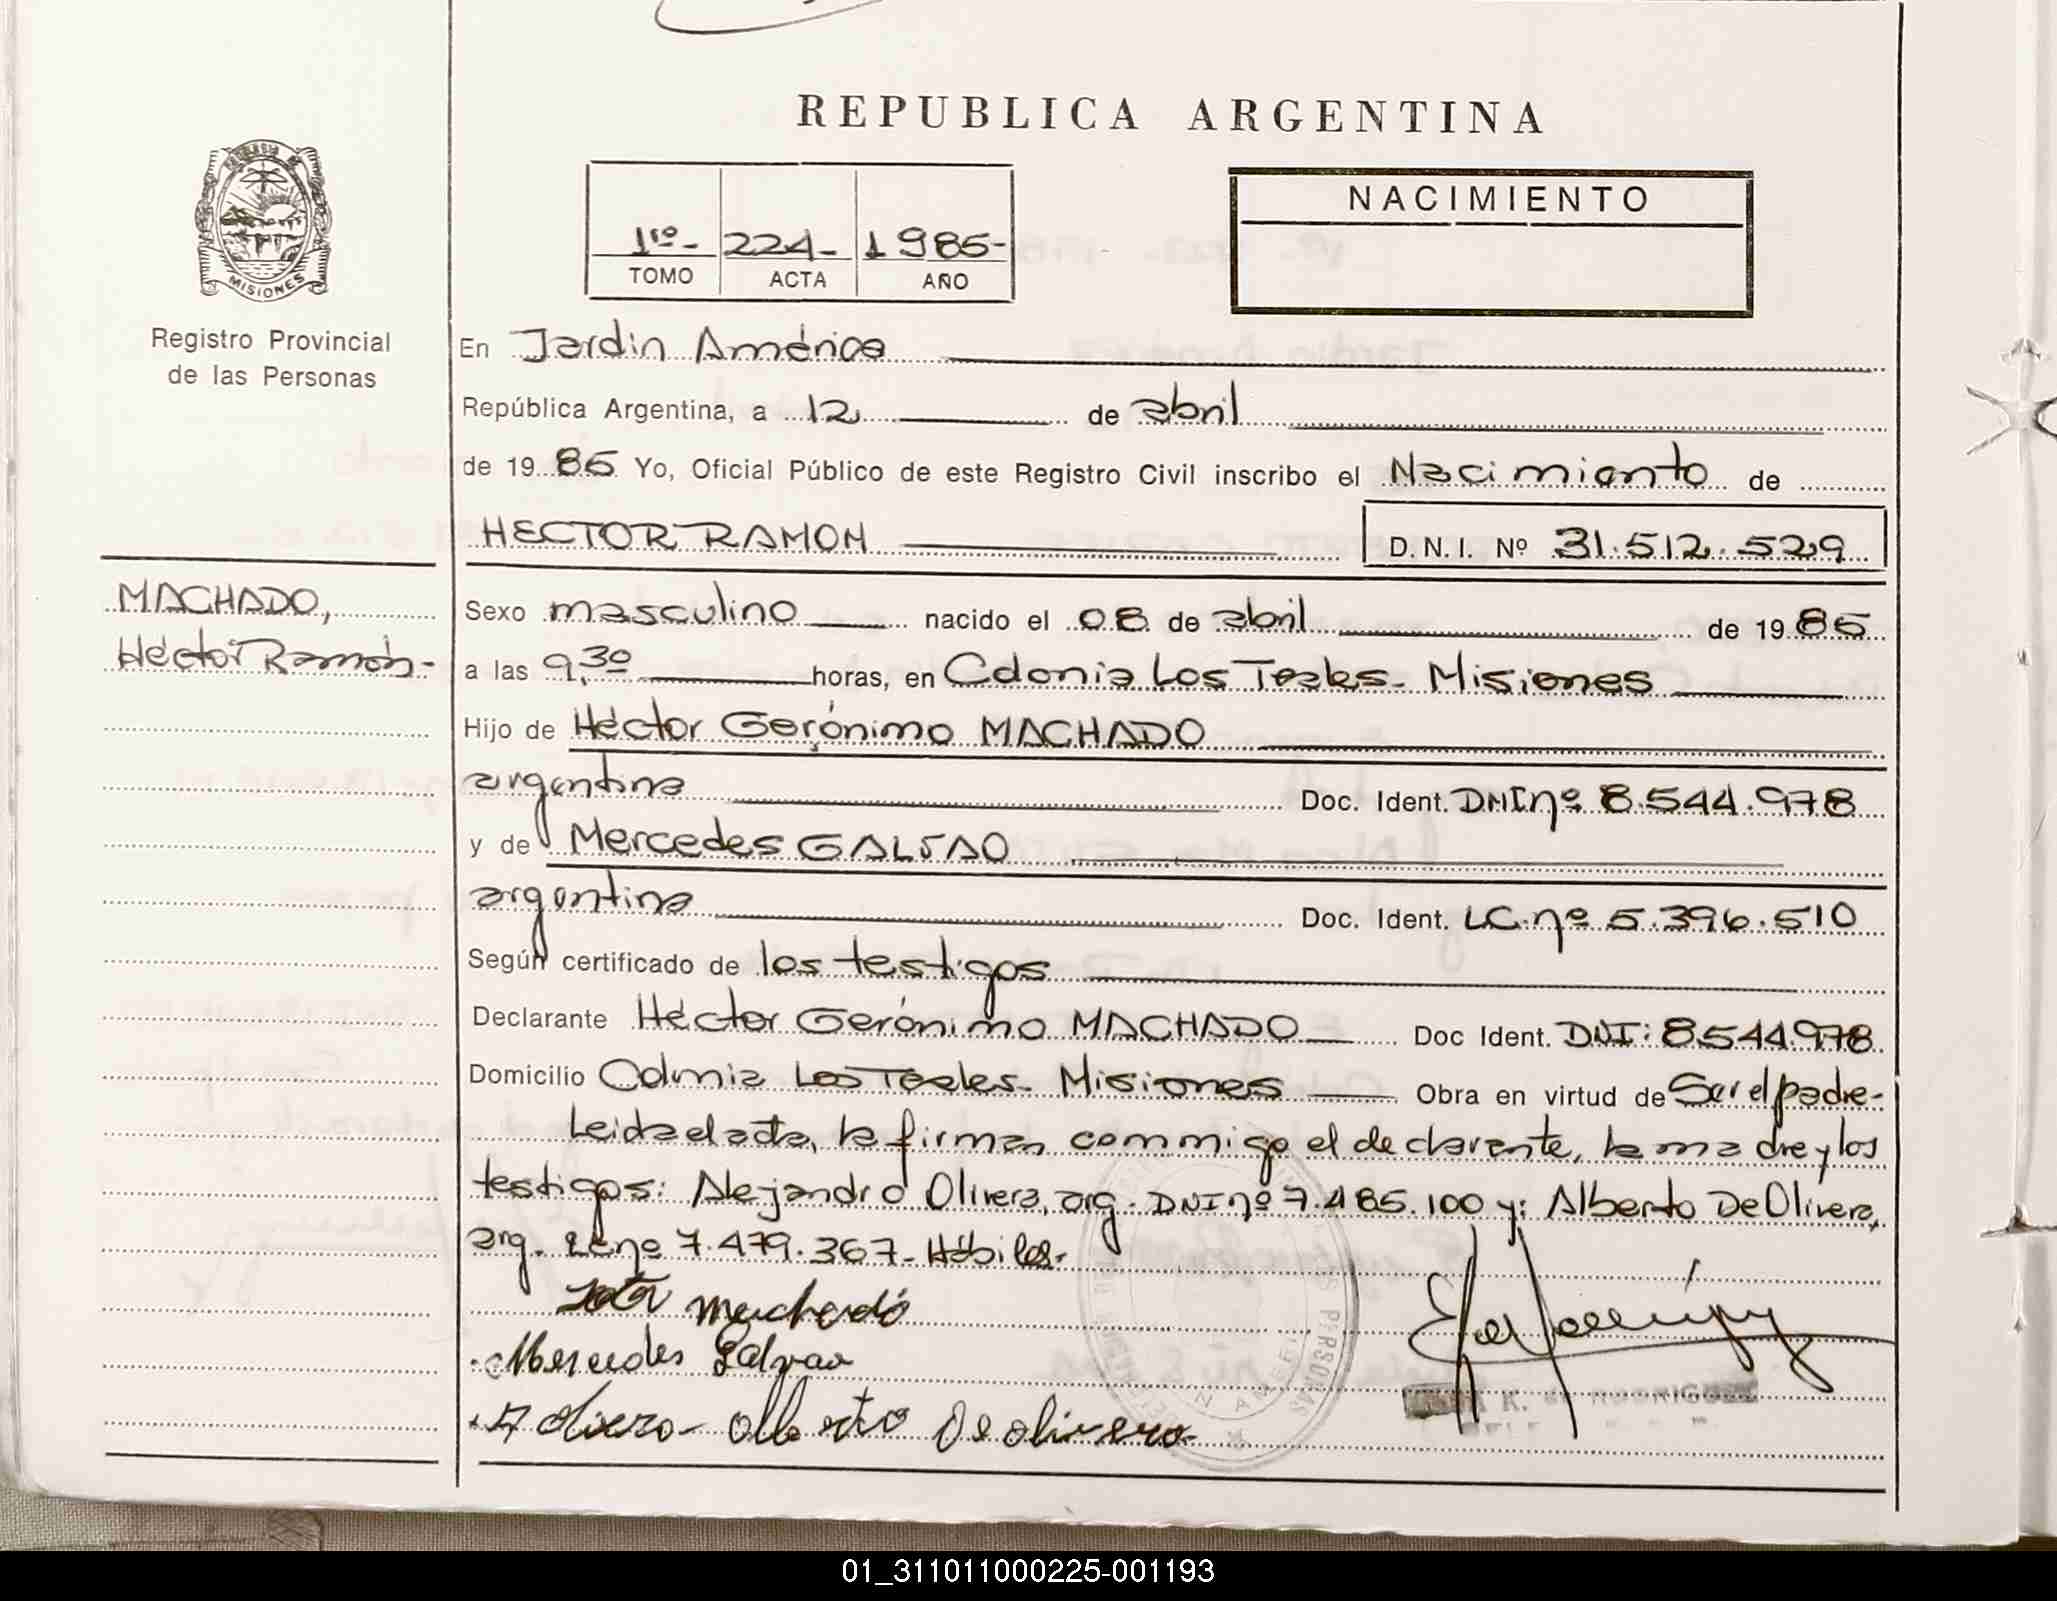 REPUBLICA ARGENTINA
PROVINCIA DE
MISIONES
Registro Provincial
de las Personas
1ro- 224- 1985-
TOMO ACTA AÑO
NACIMIENTO
En Jardín América
República Argentina, a 12 de abril
de 1985 Yo, Oficial Público de este Registro Civil inscribo el Nacimiento de
HECTOR RAMON
D.N.I. Nº 31.512.529
MACHADO,
Héctor Ramón-
Sexo masculino nacido el 08 de abril de 1985
a las 9,30 horas, en Colonia Los Teales- Misiones
Hijo de Héctor Gerónimo MACHADO
argentina Doc. Ident. DNI nº 8.544.978
y de Mercedes GALVAO
argentina Doc. Ident. LC. nº 5.396.510
Según certificado de los testigos
Declarante Héctor Gerónimo MACHADO Doc Ident. DNI: 8.544.978
Domicilio Colonia Los Teales- Misiones Obra en virtud de Ser el padre-
Leida el acta, la firman conmigo el declarante, la madre y los
testigos: Alejandro Olivera, arg. DNI nº 7.485.100 y: Alberto De Olivera,
arg. nº 7.479.367- Hábiles-
Machado
Mercedes Galvao
A olivera- Alberto De olivera-
K. de RODRIGUEZ
01_311011000225-001193